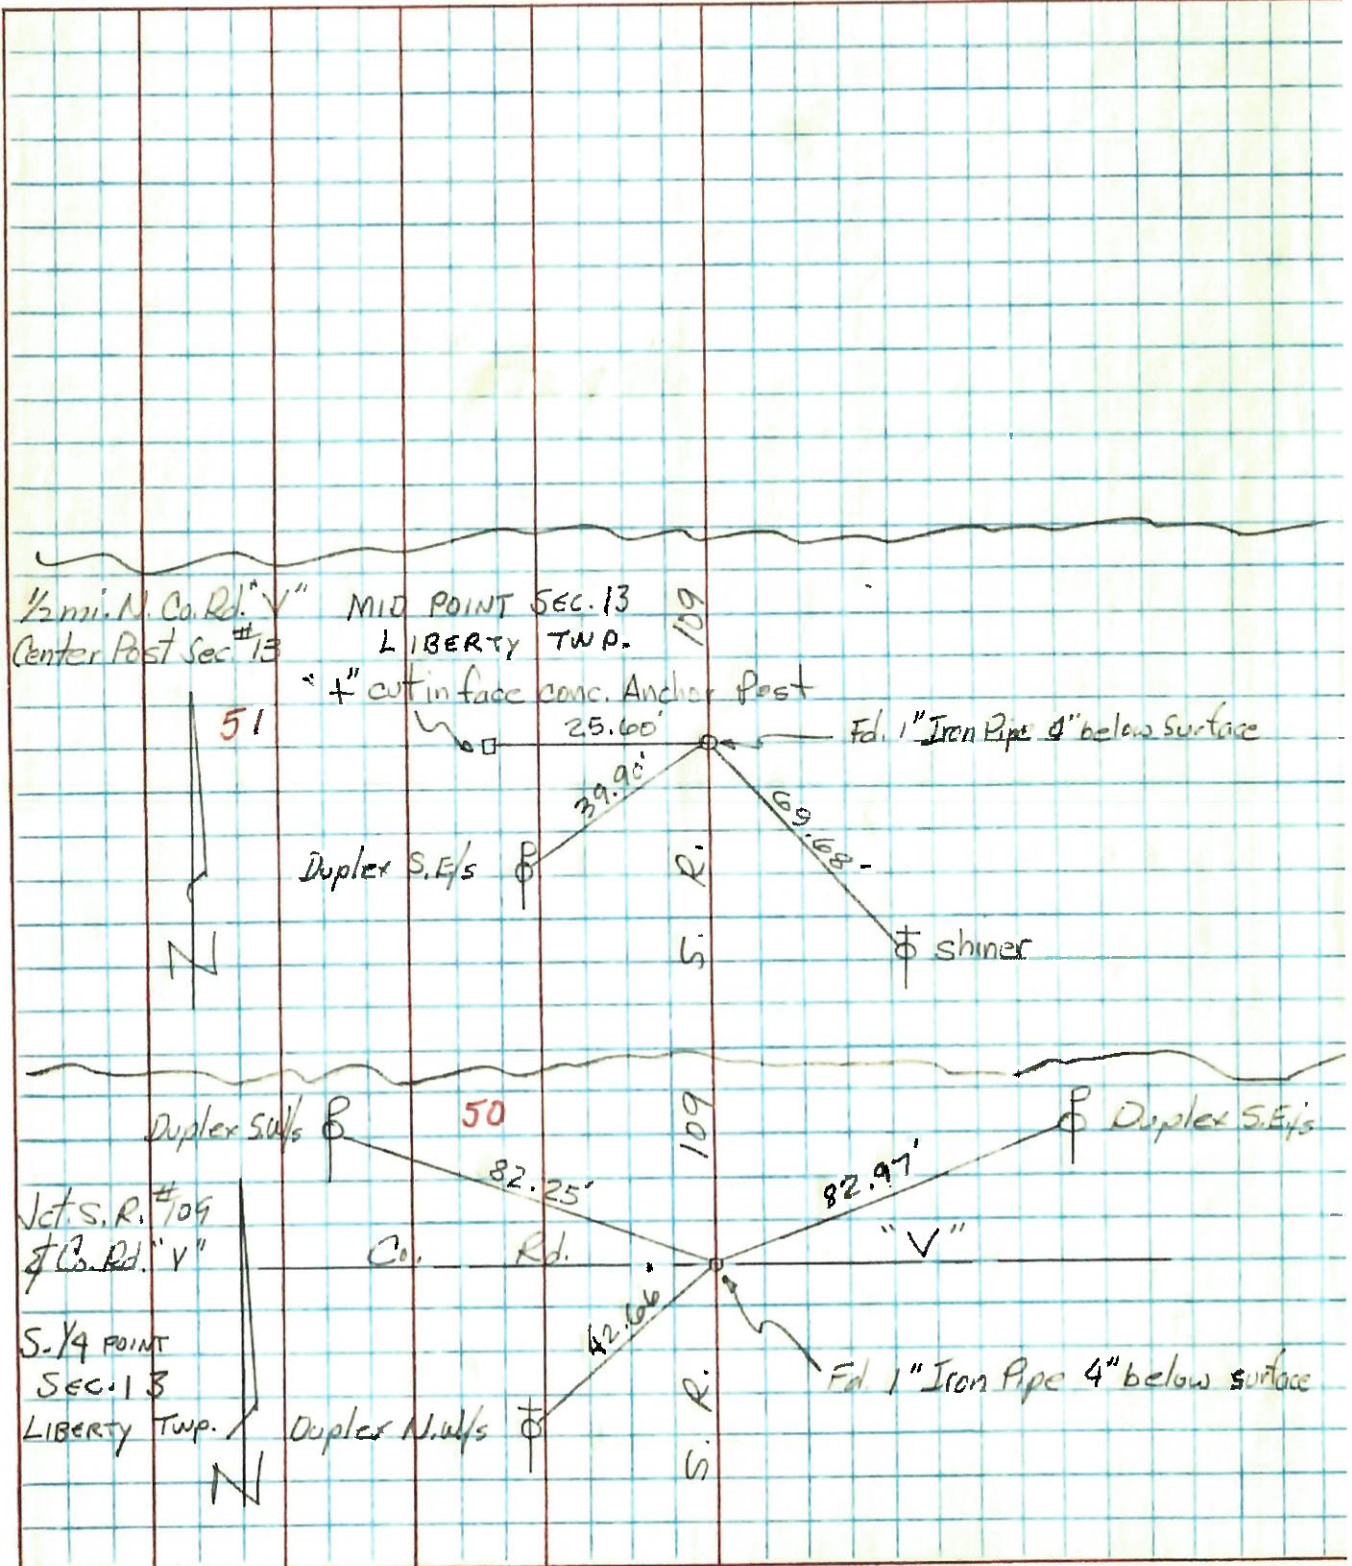 1/2 mi. N. Co. Rd. "V"
Center Post Sec #13
MID POINT SEC. 13
LIBERTY TWP.
109
"+" cut in face conc. Anchor Post
51
25.60'
Fd. 1" Iron Pipe 4" below surface
39.90'
69.68
Duplex S.E/s
S. R.
shiner
N
Duplex S.W/s
50
109
Duplex S.E/s
82.25'
82.97'
Jct. S. R. #109
& Co. Rd. "V"
Co. Rd. "V"
42.66'
S. 1/4 POINT
SEC. 13
LIBERTY TWP.
Fd. 1" Iron Pipe 4" below surface
Duplex N.W/s
S. R.
N